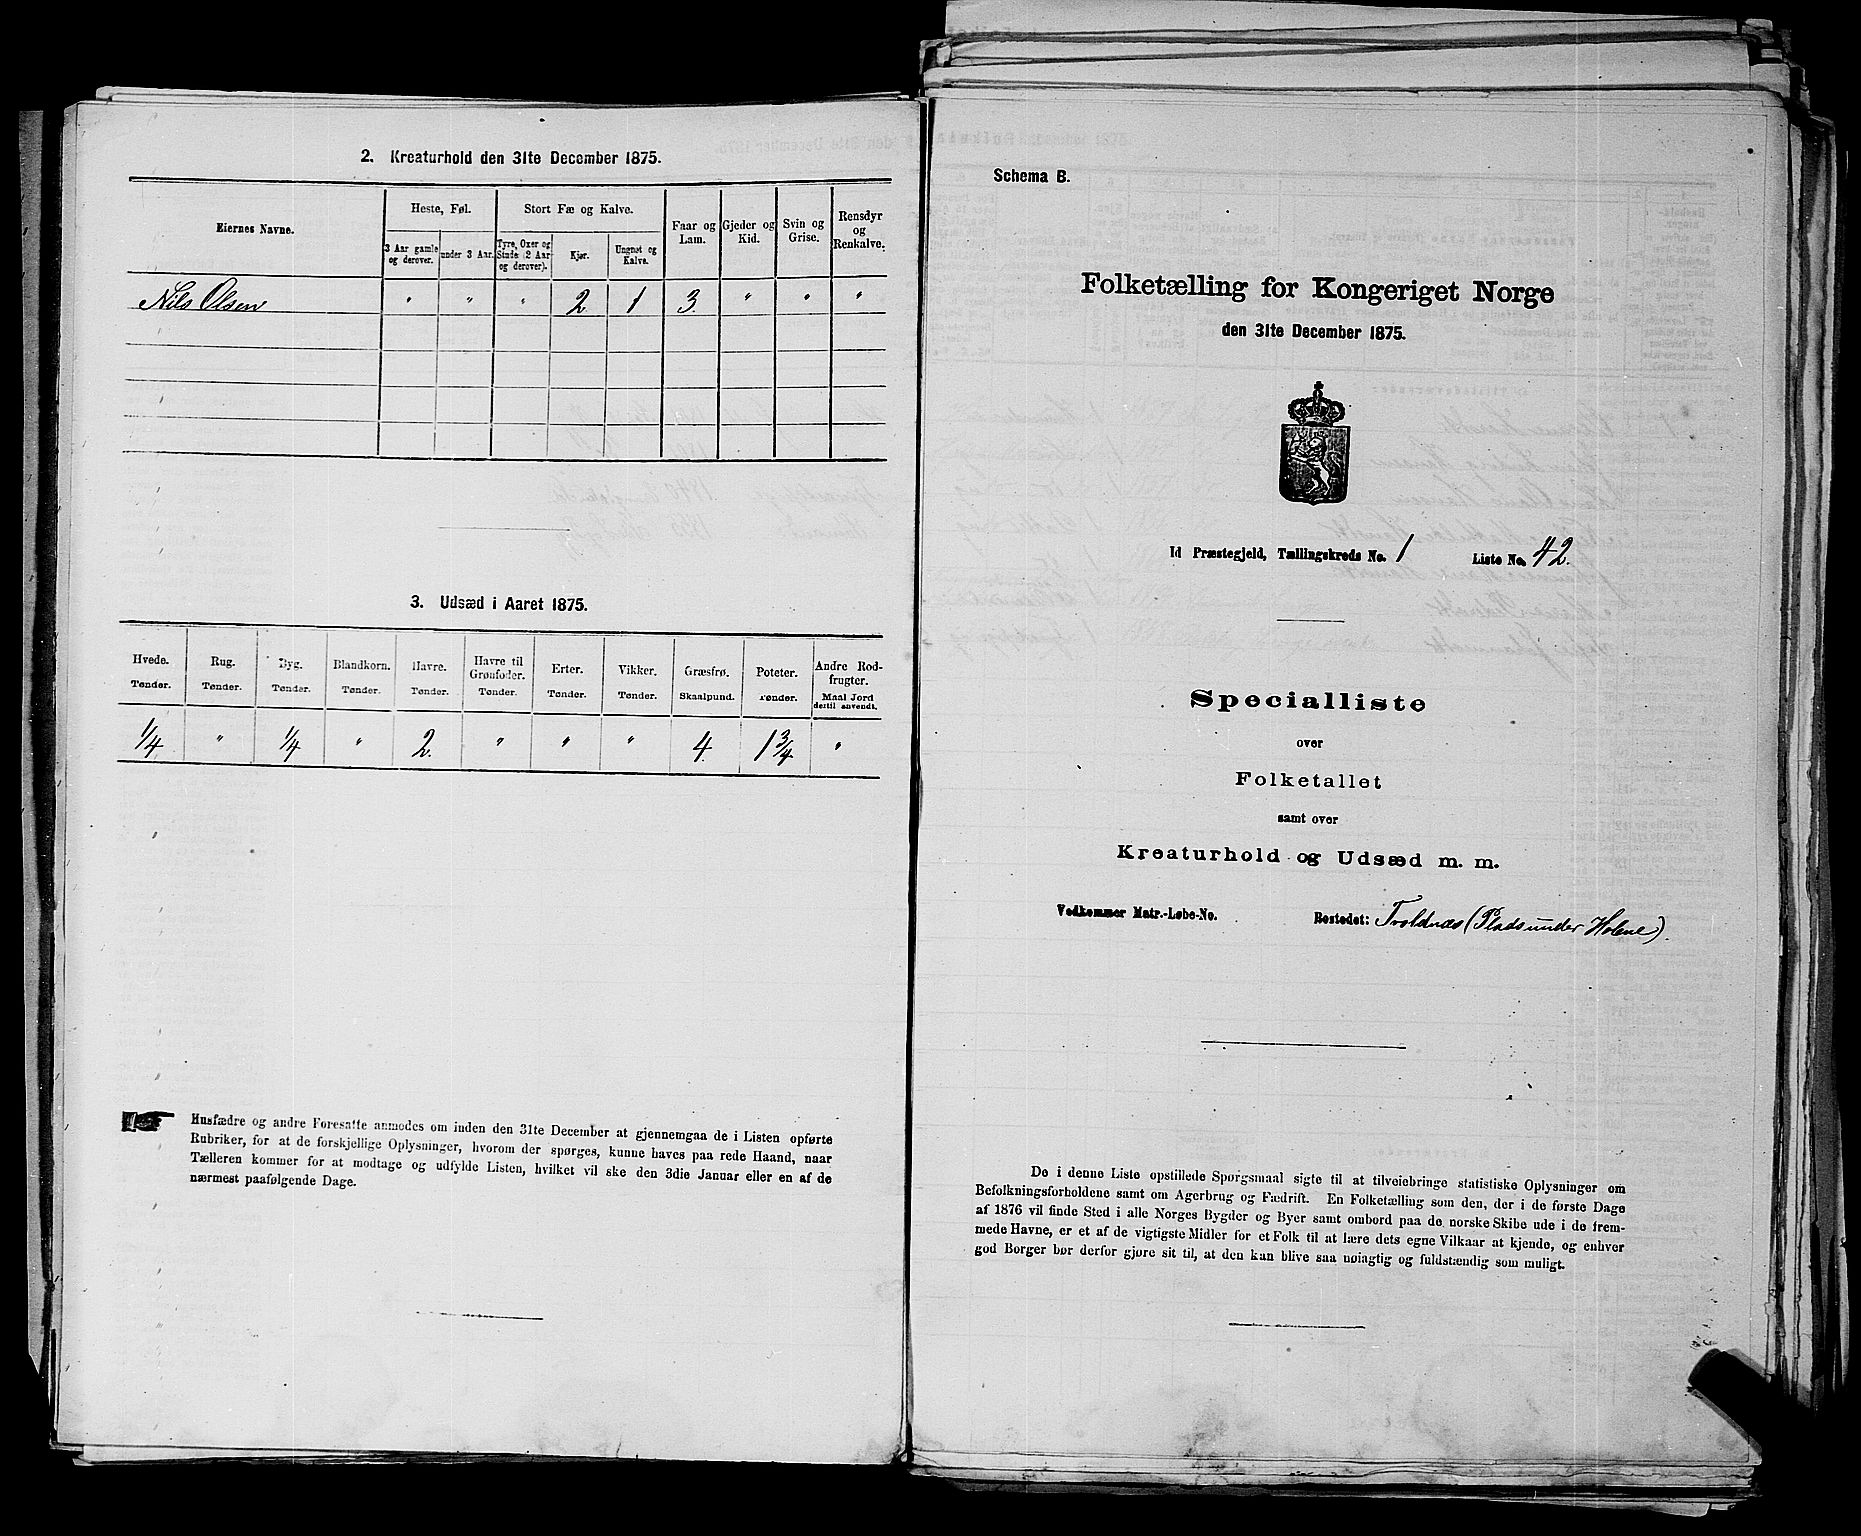 2. Kreaturhold den 31te December 1875.
Eiernes Navne.
Heste, Føl.
Stort Fæ og Kalve.
Faar og Lam.
Gjeder og Kid.
Svin og Grise.
Rensdyr og Renkalve.
3 Aar gamle og derover.
under 3 Aar.
Tyre, Oxer og Stude (2 Aar og derover).
Kjør.
Ungnøt og Kalve.
Nils Olsen " " " 2 1 3 " " "
3. Udsæd i Aaret 1875.
Hvede. Rug. Byg. Blandkorn. Havre. Havre til Grønfoder. Erter. Vikker. Græsfrø. Poteter. Andre Rodfrugter.
Tønder. Tønder. Tønder. Tønder. Tønder. Tønder. Tønder. Tønder. Skaalpund. Tønder. Maal Jord dertil anvendt.
1/4 " 1/4 " 2 " " " 4 1 3/4 "
Husfædre og andre Foresatte anmodes om inden den 31te December at gjennemgaa de i Listen opførte
Rubriker, for at de forskjellige Oplysninger, hvorom der spørges, kunne haves paa rede Haand, naar
Tælleren kommer for at modtage og udfylde Listen, hvilket vil ske den 3die Januar eller en af de
nærmest paafølgende Dage.
Schema B.
Folketælling for Kongeriget Norge
den 31te December 1875.
Id Præstegjeld, Tællingskreds No. 1 Liste No. 42.
Specialliste
over
Folketallet
samt over
Kreaturhold og Udsæd m. m.
Vedkommer Matr.-Løbe-No. Bostedet: Troldnæs (Plads under Holene).
De i denne Liste opstillede Spørgsmaal sigte til at tilveiebringe statistiske Oplysninger om
Befolkningsforholdene samt om Agerbrug og Fædrift. En Folketælling som den, der i de første Dage
af 1876 vil finde Sted i alle Norges Bygder og Byer samt ombord paa de norske Skibe ude i de frem-
mede Havne, er et af de vigtigste Midler for et Folk til at lære dets egne Vilkaar at kjende, og enhver
god Borger bør derfor gjøre sit til, at den kan blive saa nøiagtig og fuldstændig som muligt.